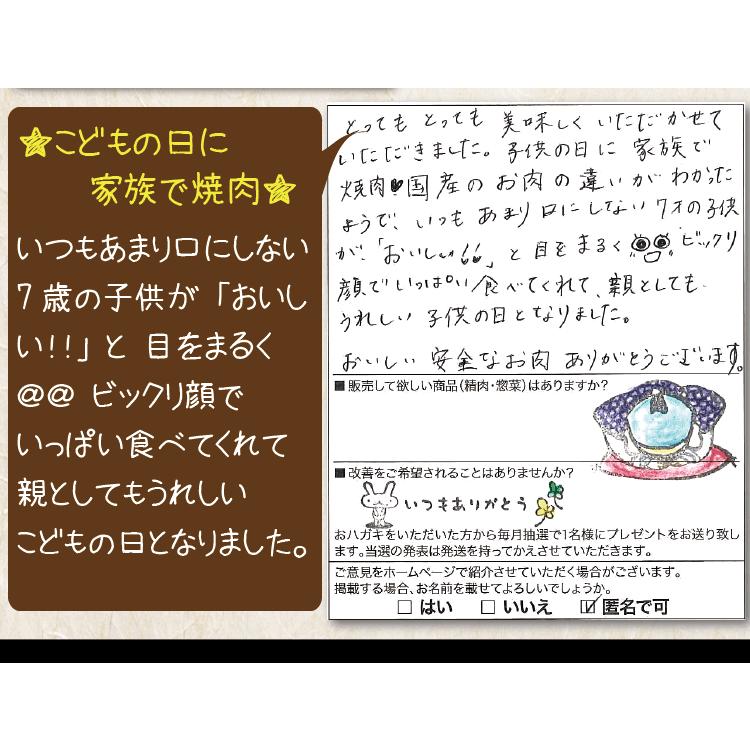 ★こどもの日に
家族で焼肉★
いつもあまり口にしない
7歳の子供が「おいし
い!!」と 目をまるく
@@ ビックリ顔で
いっぱい食べてくれて
親としてもうれしい
こどもの日となりました。
とっても とっても 美味しく いただかせて
いただきました。子供の日に 家族で
焼肉♥国産のお肉の違いが わかった
ようで、いつも あまり 口にしない 7才の子供
が、「おいしい!!」と 目をまるく ビックリ
顔で いっぱい 食べてくれて、親としても
うれしい 子供の日となりました。
おいしい 安全なお肉 ありがとうございます。
■販売して欲しい商品(精肉・惣菜)はありますか?
■改善をご希望されることはありませんか?
いつもありがとう
おハガキをいただいた方から毎月抽選で1名様にプレゼントをお送り致し
ます。当選の発表は発送を持ってかえさせていただきます。
ご意見をホームページで紹介させていただく場合がございます。
掲載する場合、お名前を載せてよろしいでしょうか。
□ はい □ いいえ ☑ 匿名で可